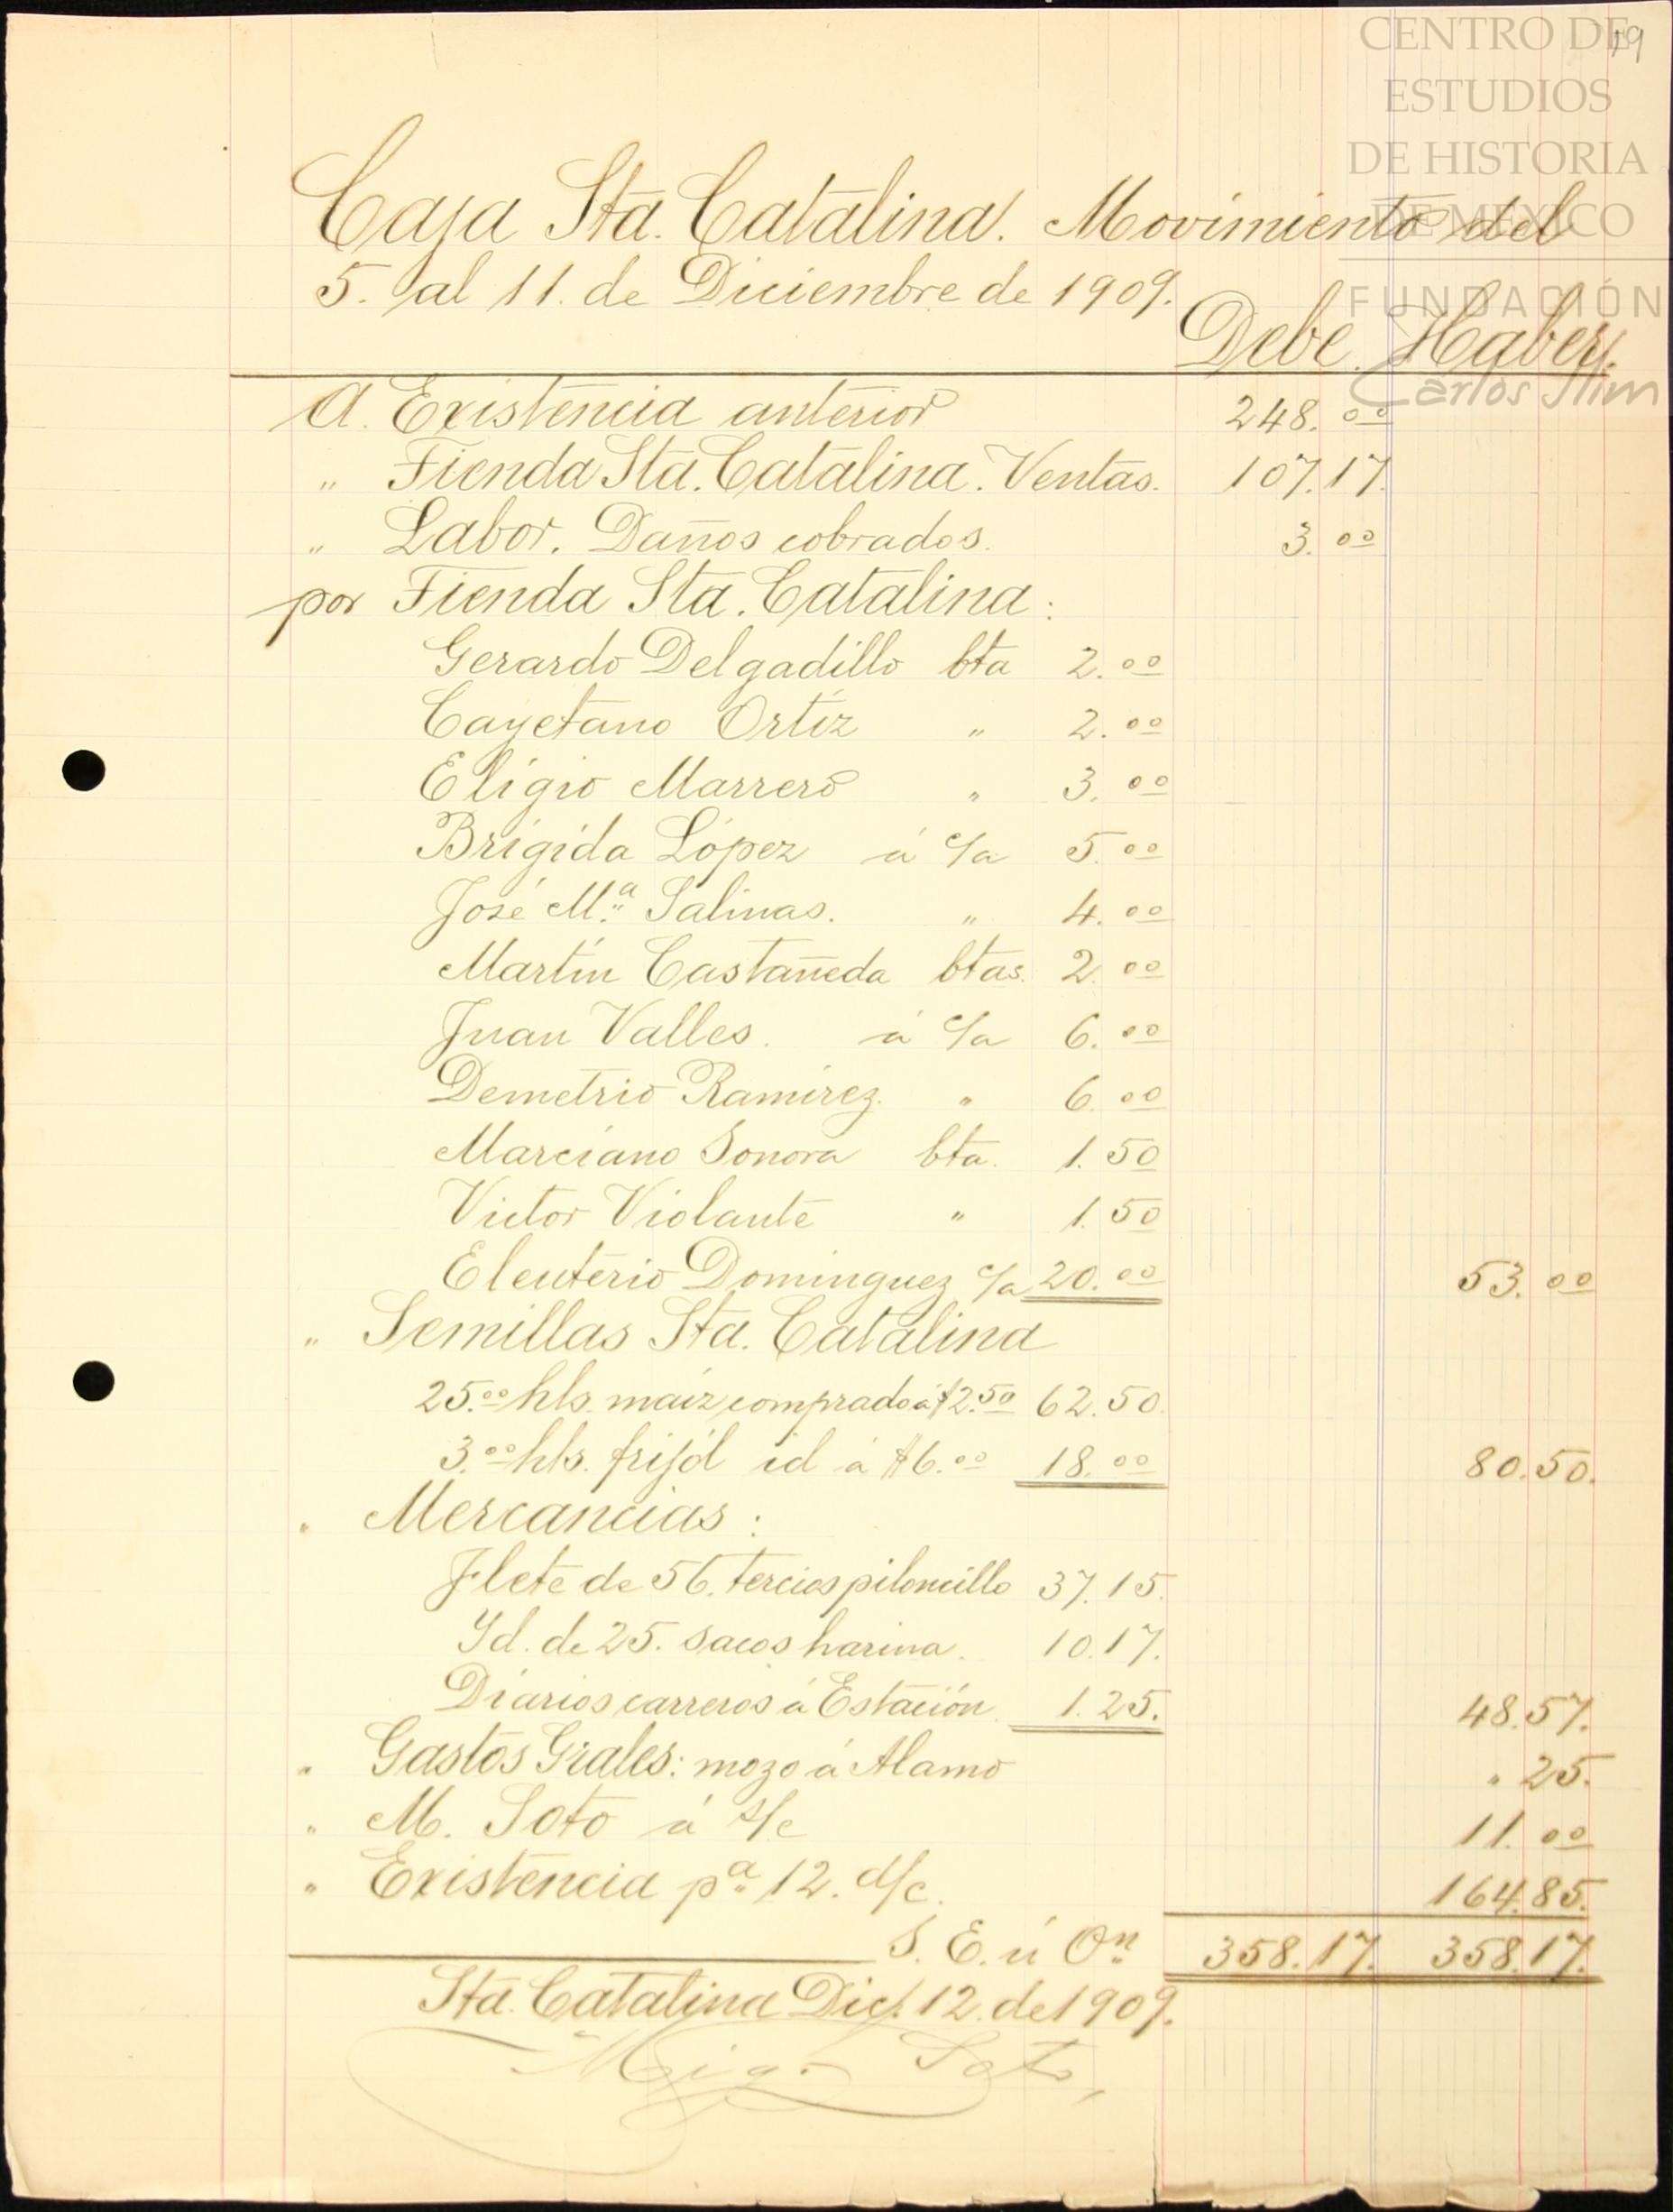 CENTRO DE
ESTUDIOS
DE HISTORIA
DE MÉXICO
FUNDACIÓN
Carlos Slim
Caja Sta. Catalina. Movimiento del
5. al 11. de Diciembre de 1909.
Debe. Haber.
A. Existencia anterior 248.00
" Tienda Sta. Catalina. Ventas. 107.17.
" Labor. Daños cobrados. 3.00
por Tienda Sta. Catalina:
Gerardo Delgadillo bta 2.00
Cayetano Ortíz " 2.00
Eligio Marrero " 3.00
Brigida López á c/a 5.00
José Ma. Salinas. " 4.00
Martín Castañeda btas. 2.00
Juan Valles. á c/a 6.00
Demetrio Ramírez. " 6.00
Marciano Sonora bta. 1.50
Victor Violante " 1.50
Eleuterio Dominguez c/a 20.00 53.00
" Semillas Sta. Catalina
25.00 hls. maíz comprado á $2.50 62.50.
3.00 hls. frijól id á $6.00 18.00 80.50.
" Mercancias:
Flete de 56. tercios piloncillo 37.15.
Yd. de 25. sacos harina. 10.17.
Diarios carreros á Estación. 1.25. 48.57.
" Gastos Grales: mozo á Alamo " 25.
" M. Soto á s/c 11.00
" Existencia pa. 12. d/c. 164.85.
S. E. ú On. 358.17. 358.17.
Sta. Catalina Dic. 12. de 1909.
Mig. Soto